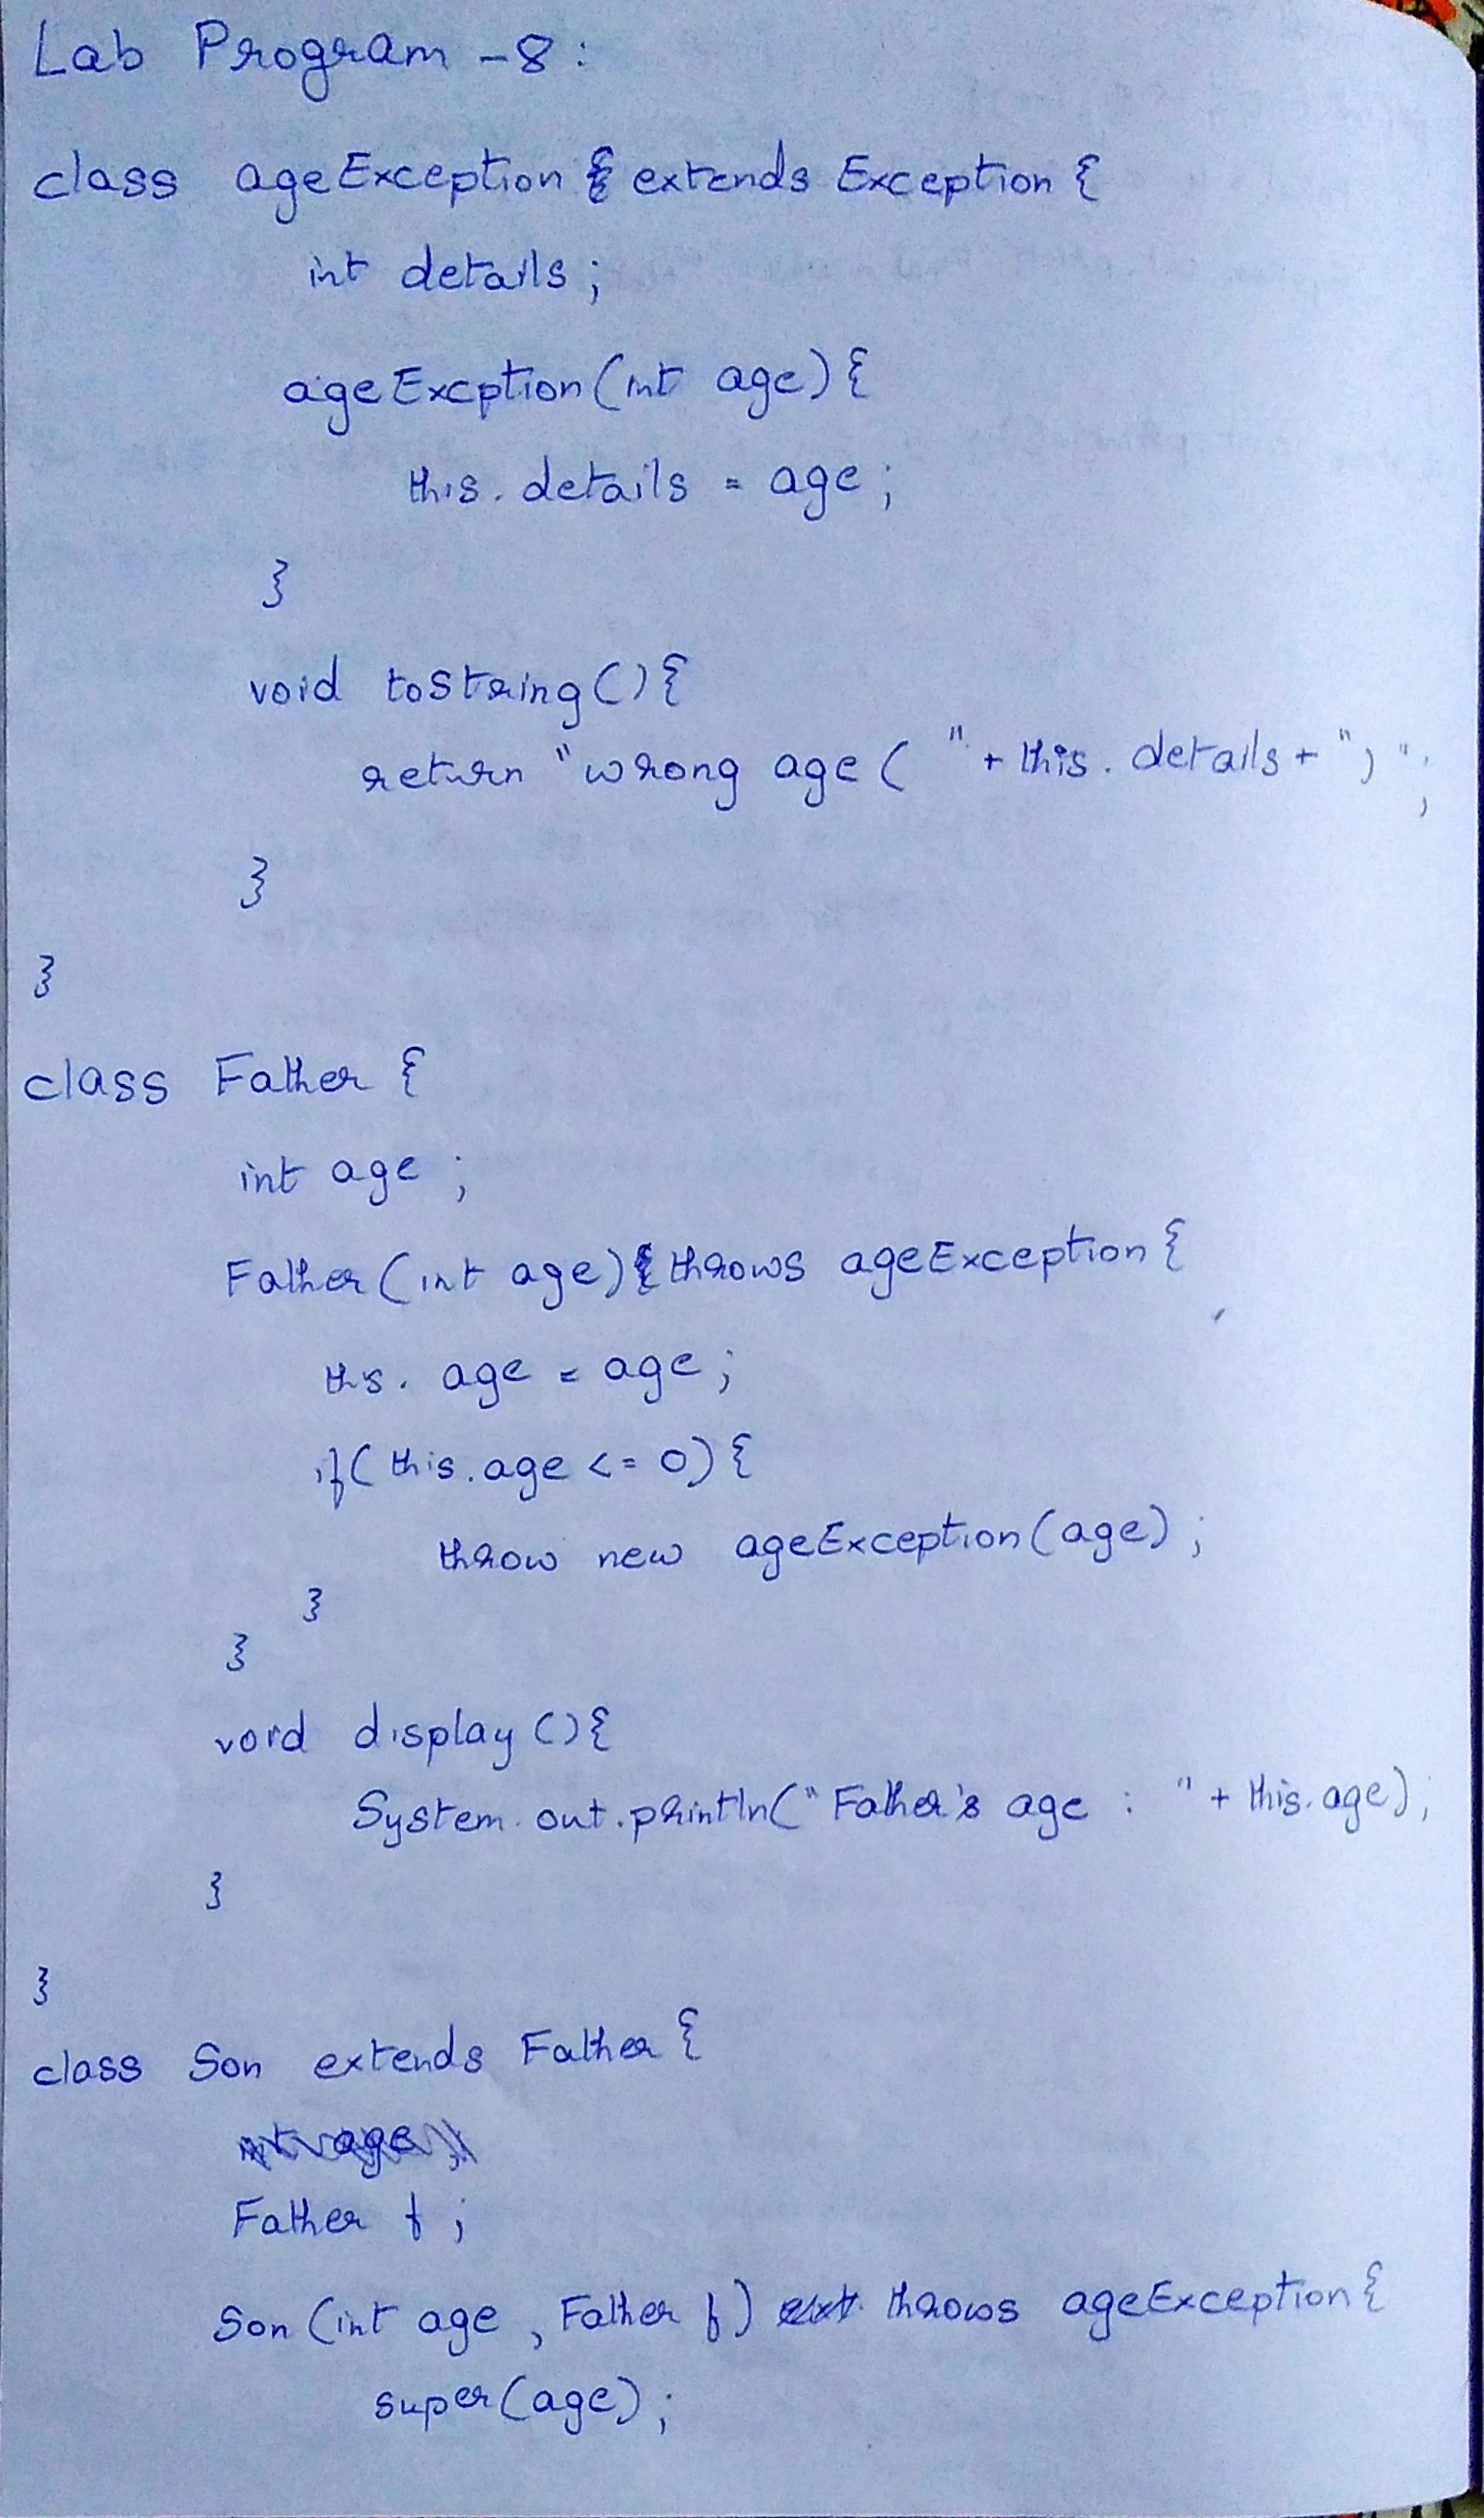 Lab Program - 8 :
class ageException { extends Exception {
int details ;
ageExcption (int age) {
this. details = age ;
}
void tostring () {
return "wrong age ( " + this. details + ") ";
}
}
class Father {
int age ;
Father (int age) { throws ageException {
this. age = age ;
if ( this. age <= 0) {
throw new ageException (age) ;
}
}
void display () {
System. out. println (" Father's age : " + this. age) ;
}
}
class Son extends Father {
int age ;
Father f ;
Son (int age , Father f) ext throws ageException {
super (age) ;